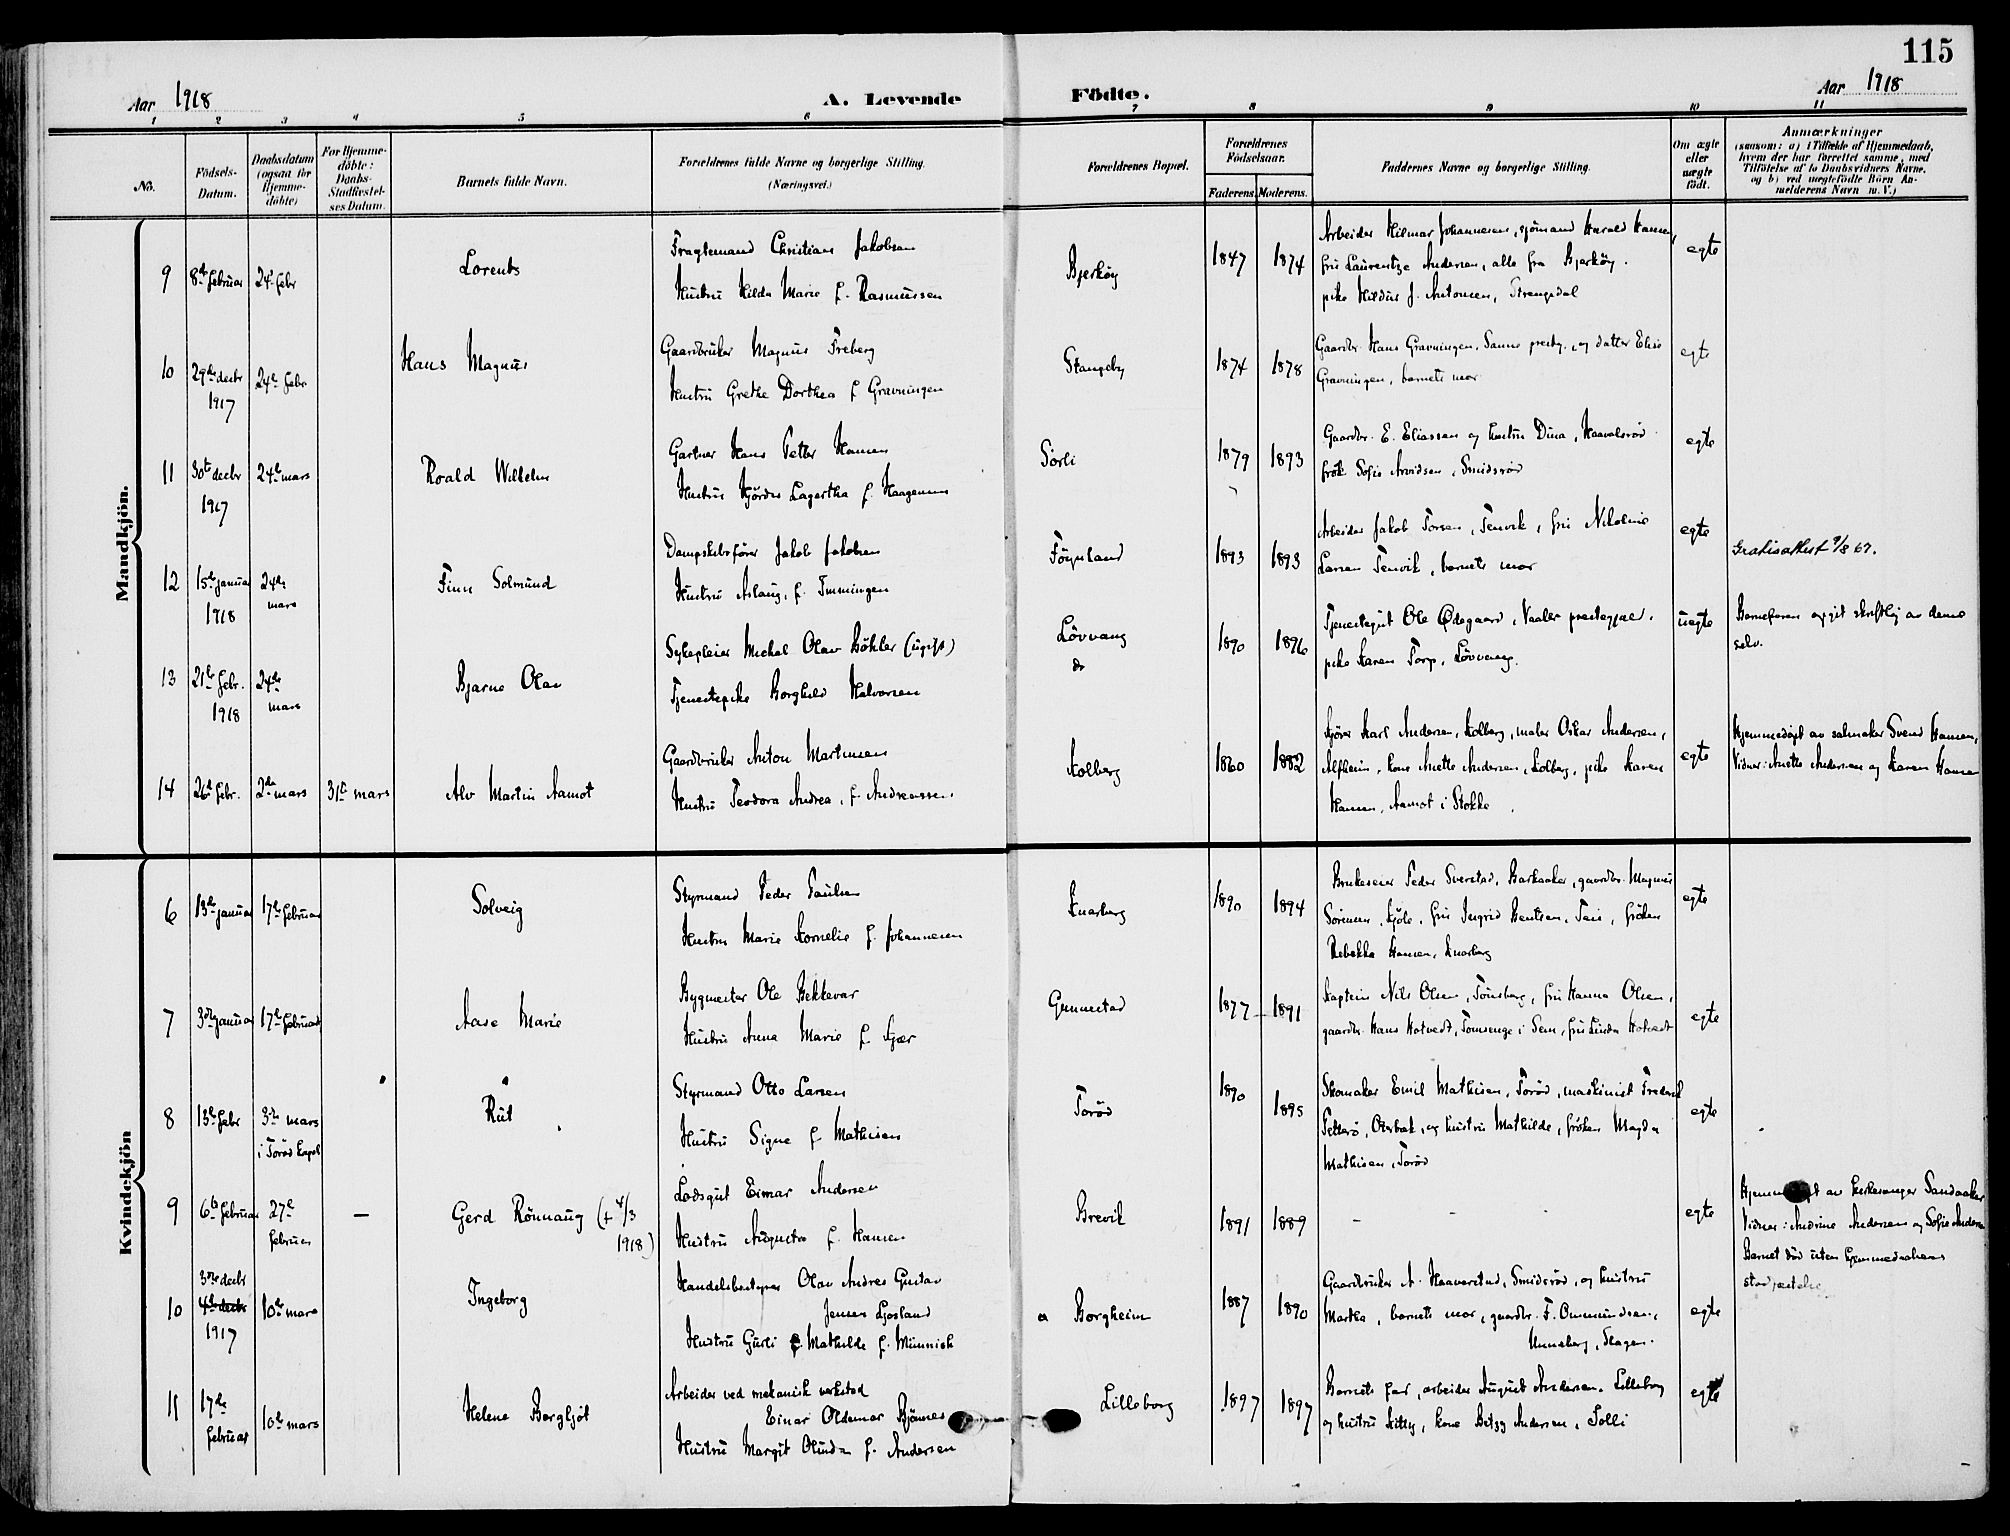 115
Aar 1918
A. Levende
Födte.
Aar 1918
1 2 3 4 5 6 7 8 9 10 11
No.
Födsels-
Datum.
Daabsdatum
(ogsaa for
Hjemme-
döbte)
For Hjemme-
döbte:
Daabs-
Stadfæstel-
ses Datum.
Barnets fulde Navn.
Forældrenes fulde Navne og borgerlige Stilling.
(Næringsvei.)
Forældrenes Bopæl.
Forældrenes
Födselsaar.
Faderens. Moderens.
Faddernes Navne og borgerlige Stilling.
Om ægte
eller
uægte
födt.
Anmærkninger
(saasom: a) i Tilfælde af Hjemmedaab,
hvem der har forrettet samme, med
Tilföielse af to Daabsvidners Navne,
og b) ved uægtefödte Börn An-
melderens Navn m. V.)
Mandkjön.
9 8de februar 24de febr Lorents
Fragtemand Christian Jakobsen
Hustru Hilda Marie f. Rasmussen
Bjerköy 1847 1874
Arbeider Hilmar Johannesen, sjömand Harald Hansen,
fru Laurentze Andersen, alle fra Bjerköy.
pike Hildur J. Antonsen, Strengsdal
egte
10 29de decbr 1917 24de febr Hans Magnus
Gaardbruker Magnus Freberg
Hustru Grethe Dorthea f Gravningen
Stangeby 1874 1878
Gaardbr. Hans Gravningen, Sanne prestg., og datter Elise
Gravningen, barnets mor
egte
11 30te decbr 1917 24de mars Roald Wilhelm
Gartner Hans Petter Hansen
Hustru Hjördis Lagertha f. Haagensen
Sörli 1879 1893
Gaardbr. E. Eliassen og hustru Dina, Haavalsröd
frök Sofie Arvidsen, Smidsröd
egte
12 15de januar 1918 24de mars Finn Solmund
Dampskibsförer Jakob Jakobsen
Hustru Aslaug, f. Tmmingen
Föynland 1893 1893
Arbeider Jakob Torsen, Tenvik, fru Nikoline
Larsen Tenvik, barnets mor
egte
Gratisattest 9/8 67.
13 21de febr. 1918 24de mars Bjarne Olav
Sykepleier Michal Olav Böhler (ugift)
Tjenestepike Borghild Halvorsen
Lövvang
do
1890 1896
Tjenestegut Ole Ödegaard, Vaaler prestegjæl.
pike Karen Torp, Lövvang.
uegte
Barnefaren opgit skriftlig av denne
selv.
14 26de febr. 2den mars 31te mars Alv Martin Aamot
Gaardbruker Anton Martinsen
Hustru Teodora Andrea, f. Andreassen.
Kolberg 1860 1882
Skjörer Karl Andersen, Kolberg, maler Oskar Andersen,
Alfheim, kone Anette Andersen, Kolberg, pike Karen
Hansen, Aamot i Stokke
egte
Hjemmedöpt av salmaker Svend Hansen,
Vidner: Anette Andersen og Karen Hansen
Kvindekjön
6 13de januar 17de februar Solveig
Styrmand Peder Paulsen
Hustru Marie Kornelie f. Johannesen
Knarberg 1890 1894
Brukseier Peder Sverstad, Barkaaker, gaardbr. Magnus
Sörensen, Kjöle, fru Ingrid Bentsen, Teie, fröken
Rebekka Hansen, Knarberg
egte
7 3die januar 17de februar Aase Marie
Bygmester Ole Bekkevar
Hustru Anna Marie f. Kjær
Gunnestad 1877 1891
Kaptein Nils Olsen, Tönsberg, fru Hanna Olsen,
gaardbr. Hans Hotvedt, Tomsenge i Sem, fru Linda Hotvedt
egte
8 13de febr 3die mars i Toröd kapel Rut
Styrmand Otto Larsen
Hustru Signe f Mathisen
Toröd 1890 1895
Skomaker Emil Mathisen, Toröd, maskinist Frederik
Petterö, Oterbek, og hustru Mathilde, fröken Magda
Mathisen, Toröd
egte
9 6te februar 27de februar — Gerd Rönnaug († 4/3 1918)
Lodsgut Einar Andersen
Hustru Augusta f. Hansen
Brevik 1891 1889 - - -
egte
Hjemmedöpt av kirkesanger Sandaaker
Vidner: Andrine Andersen og Sofie Andersen
Barnet död uten hjemmedaabens
stadfæstelse
10 3die decbr 4de decbr 1917 10de mars Ingeborg
Handelsbestyrer Olav Andres Gustav
Jensen Ljosland
Hustru Gurli Mathilde f. Münnich
Borgheim 1887 1890
Gaardbruker A. Haaverstad, Smidsröd, og hustru
Martha, barnets mor, gaardbr. F. Ommundsen,
Unneberg, Slagen.
egte
11 17de februar 10de mars Helene Bergljot
Arbeider ved mekanisk verksted
Einar Oldemar Bjönnes
Hustru Margit Olinda f. Andersen
Lilleborg 1897 1897
Barnets far, arbeider August Andersen, Lilleborg
og hustru Kitty, kone Betzy Andersen, Solli
egte